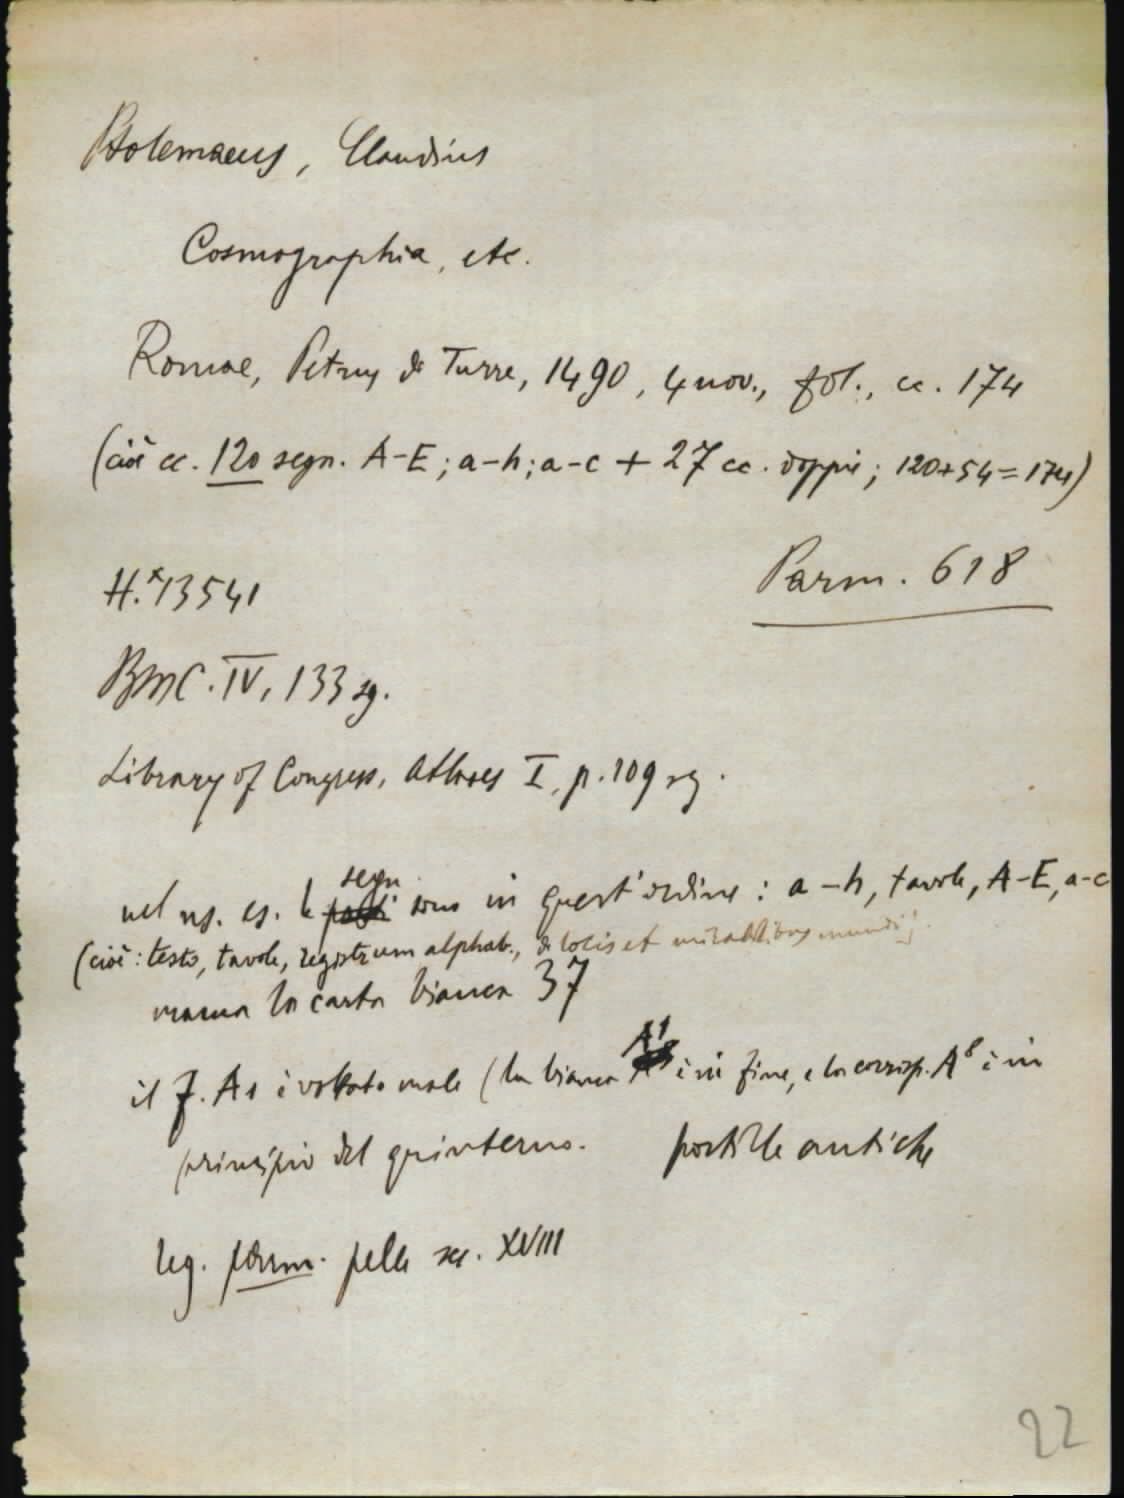 Ptolemaeus, Claudius
Cosmographia, etc.
Romae, Petrus de Turre, 1490, 4 nov., fol., cc. 174
(cioè cc. 120 segn. A-E; a-h; a-c + 27 cc. doppie; 120+54=174)
Parm. 618
H.*13541
BMC. IV, 133 sg.
Library of Congress, Atlases I, p. 109 sg.
segn.
nel ns. es. le sono in quest'ordine: a-h, tavole, A-E, a-c
(cioè: testo, tavole, registrum alphab., de locis et mirabilibus mundi).
manca la carta bianca 37
A1
il f. A1 è voltato male (la bianca è in fine, e la corrisp. A8 è in
principio del quinterno.
postille antiche
leg. parm. pelle sec. XVIII
22